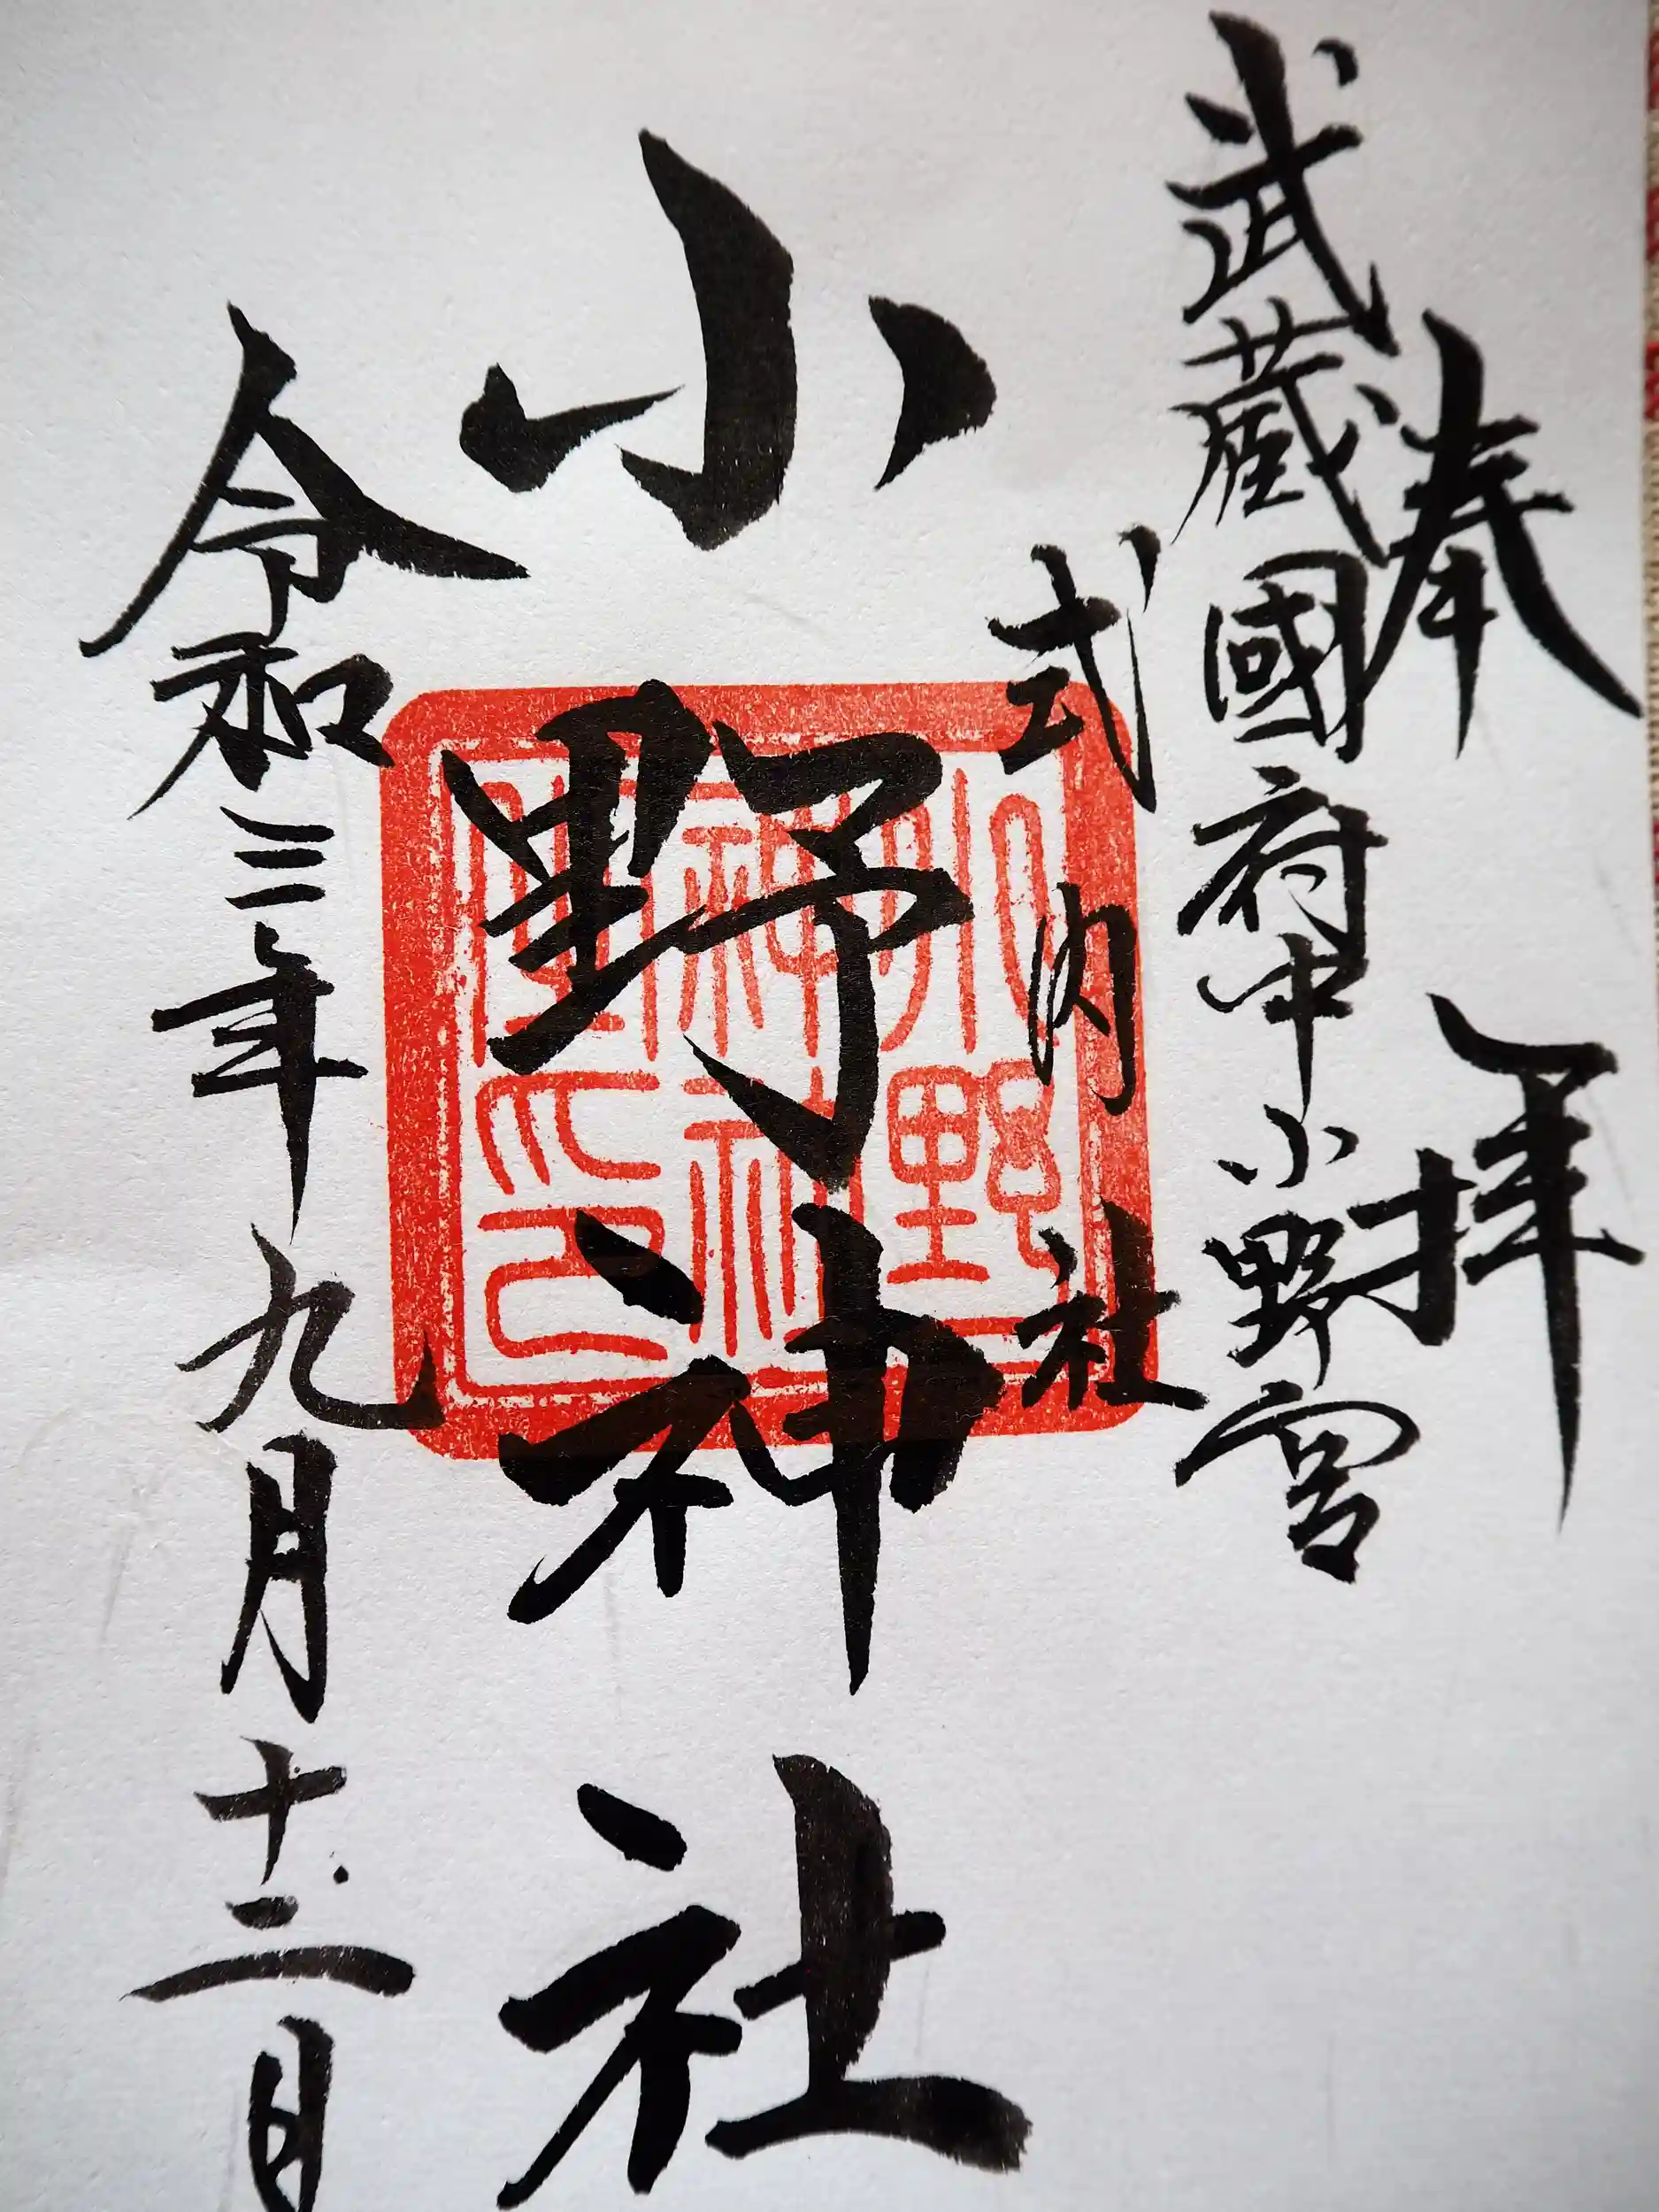 奉拝
武蔵國府中小野宮
式内社
小野神社
小野
神社
之印
令和三年九月十二日